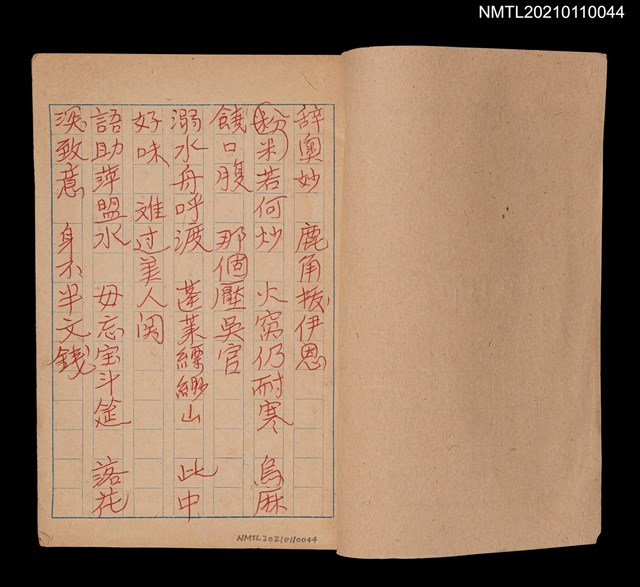 NMTL20210110044
辞奧妙　鹿角擬伊恩
(粉米)若何炒　火窩仍耐寒　烏麻
饒口腹　那個壓吳官
溺水舟呼渡　蓬萊縹緲山　此中
好味　难过美人関
語助萍盟水　毋忘宝斗筵　落花
深致意　身不半文錢
NMTL20210110044